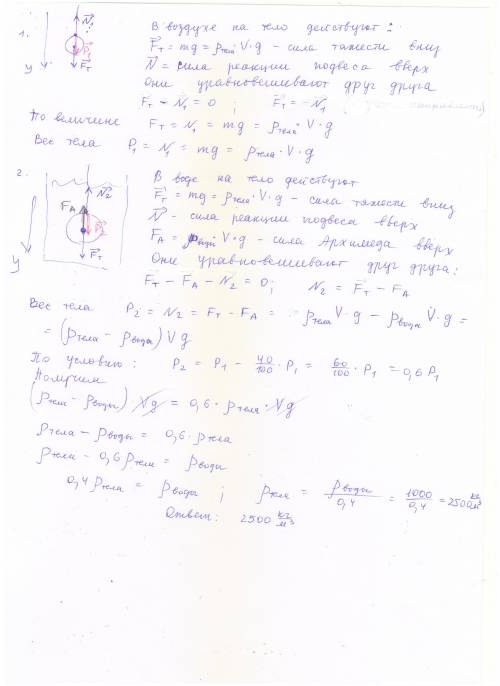 1.
N₁
P₁
Fт
y
В воздухе на тело действуют:
Fт = mg = ρтела · V · g - сила тяжести вниз
N - сила реакции подвеса вверх
Они уравновешивают друг друга
Fт - N₁ = 0 ; Fт = - N₁
По величине Fт = N₁ = mg = ρтела · V · g
Вес тела P₁ = N₁ = mg = ρтела · V · g
2.
N₂
FA
Fт
y
В воде на тело действуют
Fт = mg = ρтела · V · g - сила тяжести вниз
N - сила реакции подвеса вверх
FA = ρводы · V · g - сила Архимеда вверх
Они уравновешивают друг друга:
Fт - FA - N₂ = 0; N₂ = Fт - FA
Вес тела P₂ = N₂ = Fт - FA = ρтела V · g - ρводы V · g =
= (ρтела - ρводы) V g
По условию: P₂ = P₁ - 40/100 · P₁ = 60/100 · P₁ = 0,6 P₁
Получим
(ρтела - ρводы) · Vg = 0,6 · ρтела · Vg
ρтела - ρводы = 0,6 · ρтела
ρтела - 0,6 ρтела = ρводы
0,4 ρтела = ρводы ; ρтела = ρводы/0,4 = 1000/0,4 = 2500 кг/м³
Ответ: 2500 кг/м³